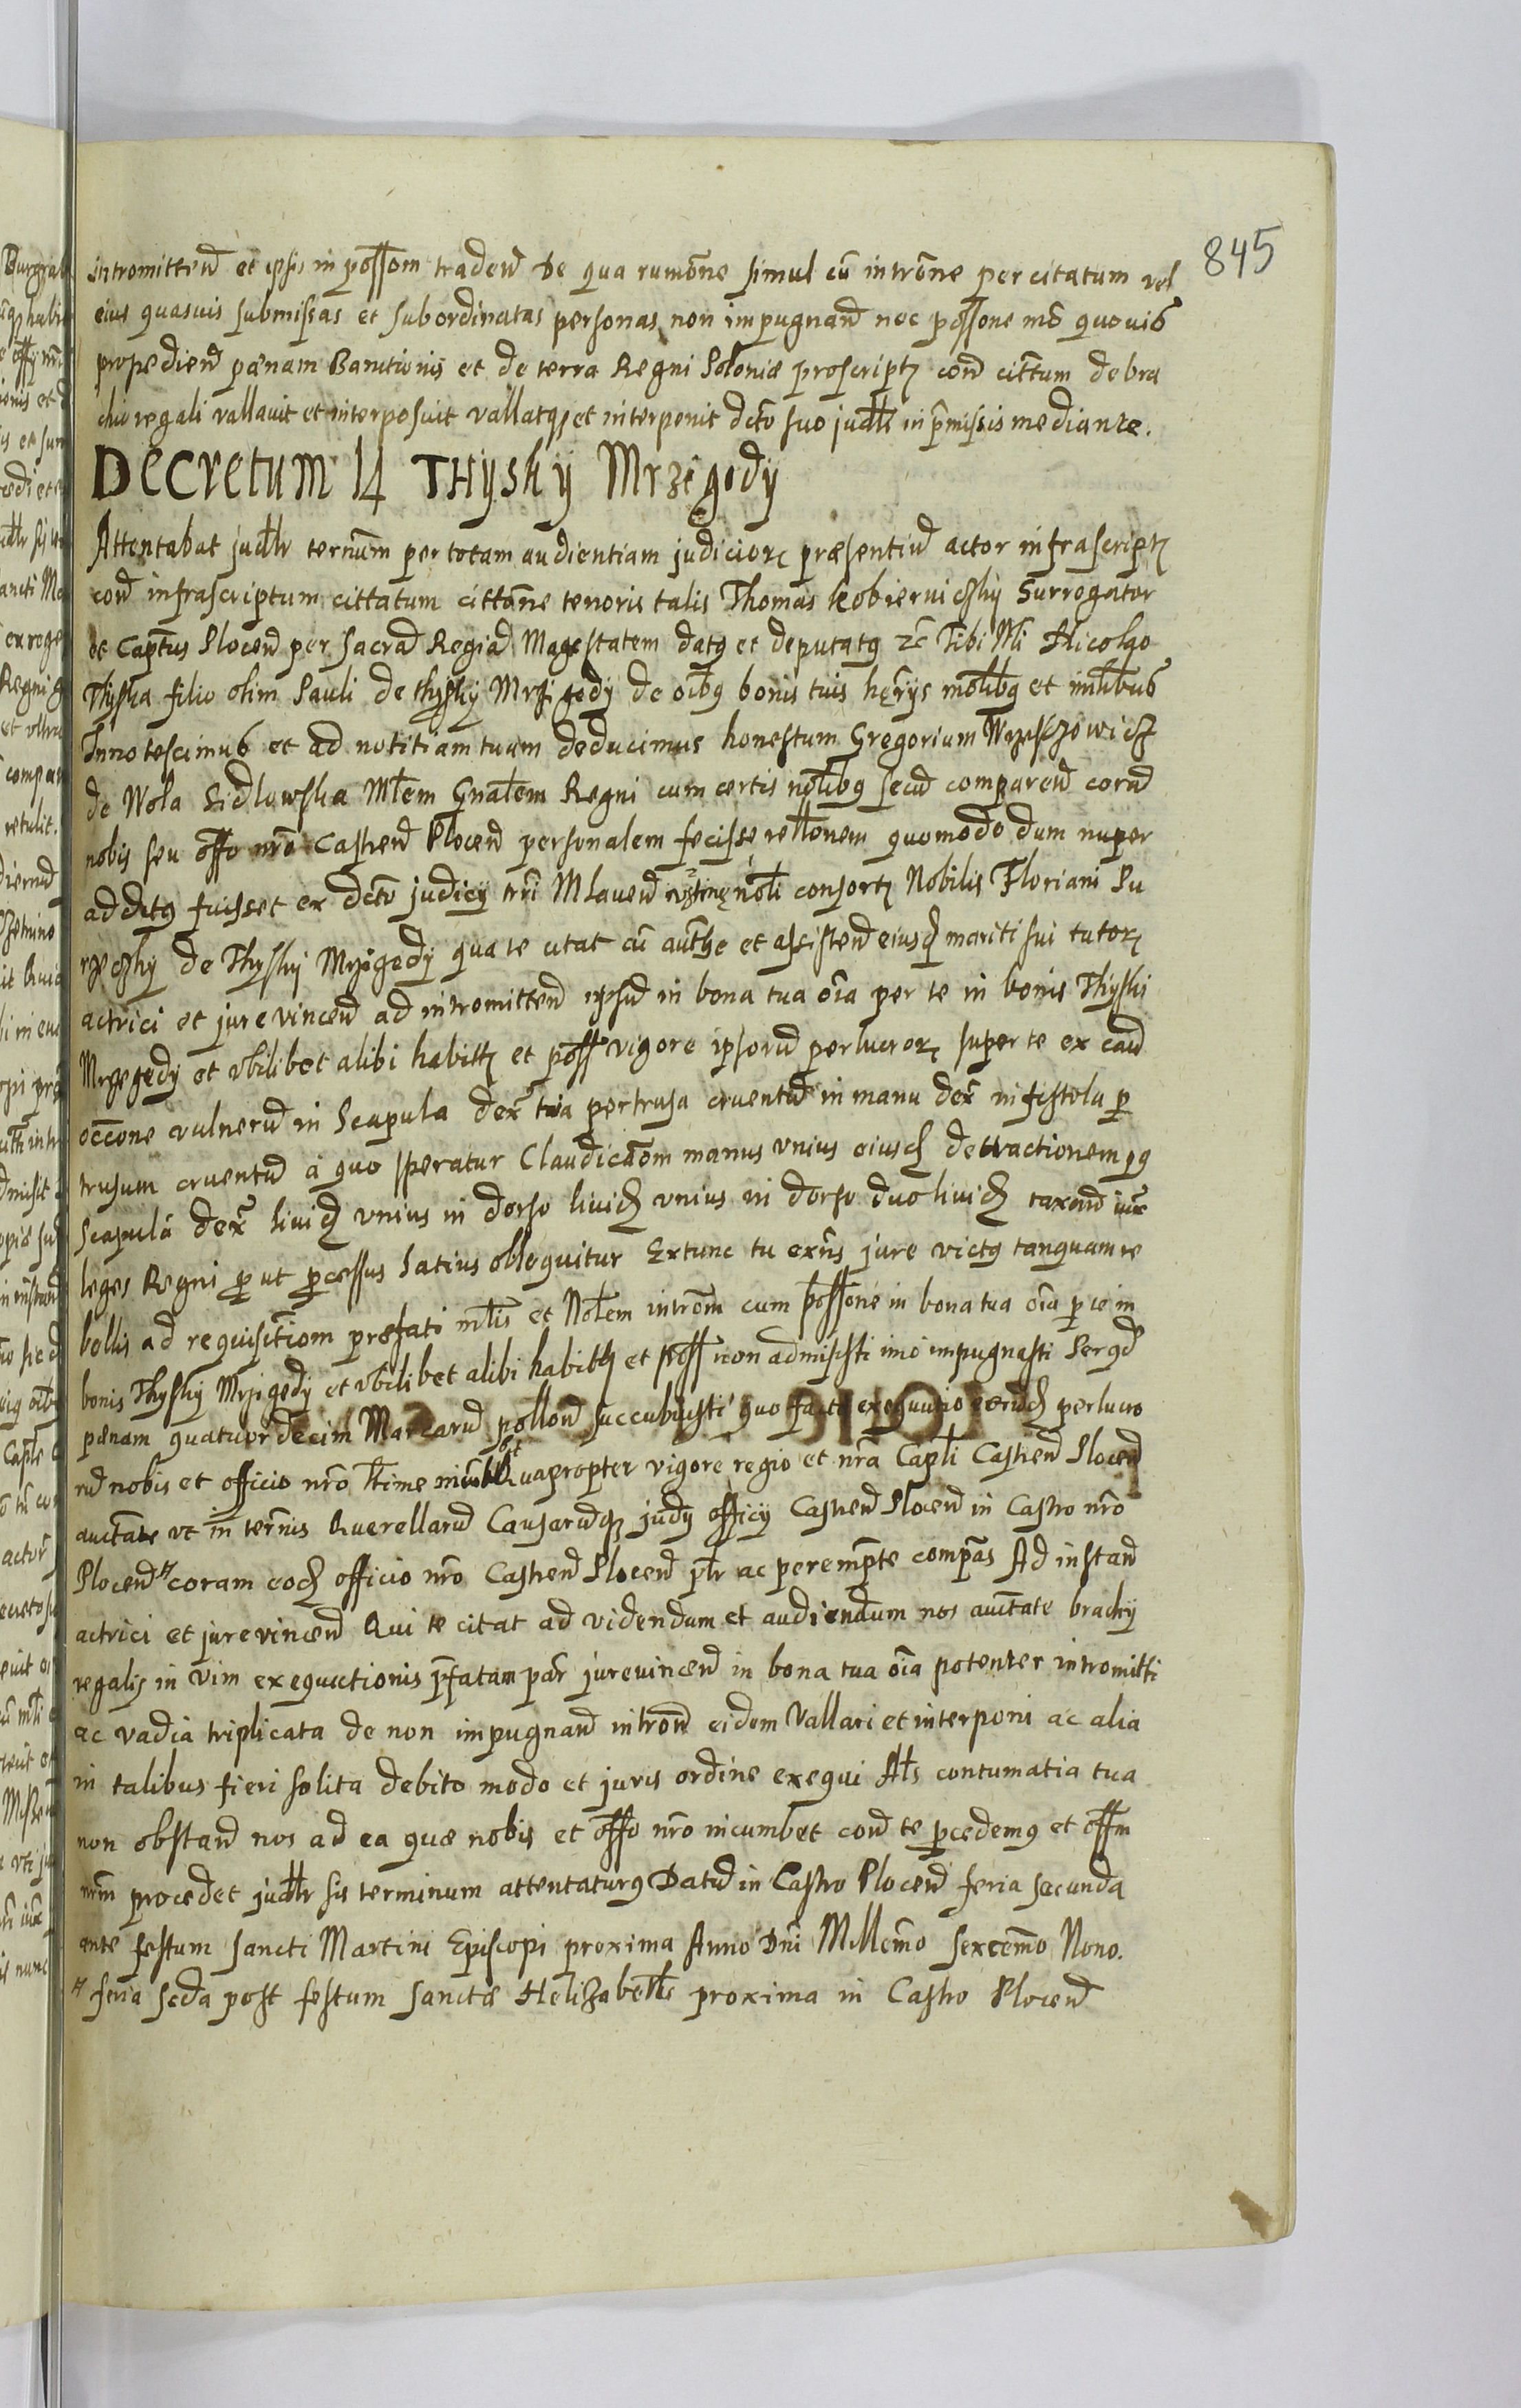 845
intromitten et ipsis in possom traden De qua rumone simul cu introne per citatum vel
eius quasuis submissas et subordinatas personas non impugnan nec possone mo quouis
propedien pænam Banctionis et de terra Regni Poloniæ proscript con cittum de bra
chio regali vallauit et interposuit vallatq et interponit dcto suo judtr in pmissis mediante.
Decretum 14 Thysky Mrzegody
Attentabat judtr ternum per totam audientiam judicior præsentiu actor infrascript
con infrascriptum cittatum cittone tenoris talis Thomas Kobierniczky Surrogator
et Captus Plocen per Sacra Regia Magestatem datq et deputatq zc Tibi Nli Nicolao
Thyska filio olim Pauli de thysky Mrzigody de oibq bonis tuis hęrijs molibq et imlibus
Innotescimus et ad notitiam tuam deducimus honestum Gregorium Wrzesczowicz
de Wola Sidlowska Mlem Gnalem Regni cum certis nolibq secu comparen cora
nobis seu offo nro Castren Plocen personalem fecisse rellonem quomodo dum nuper
ad ditq fuisset ex dcto judicij trri Mlauen noli consort Nobilis Floriani Su
rzeczky de Thysky Mrzigody qua te citat cu authe et assisten eiusd mariti sui tutor
actrici et jure vincen ad intromitten ipsu in bona tua oia per te in bonis Thyski
Mrzegody et vbilibet alibi habitt et poss vigore ipsoru perlucror super te ex cau
occone vulneru in Scapula dex tria pertrusa cruentu in manu dex in fistola p
trusum cruentu a quo speratur Claudicaom manus vnius eiusd detractionem pq
scapula dex liuid vnius in dorso liuid vnius in dorso duo liuid taxand iux
leges Regni p ut pcessus latius obloquitur Extunc tu exns jure victq tanquam re
bellis ad requisitiom præfati mlis et Nolem introm cum possone in bona tua oia p te in
bonis Thysky Mrzigody et vbilibet alibi habitt et poss non admisisti imo impugnasti Pergd
pænam quatuordecim Marcaru pollon succubuisti quo facto exequutio eorud perlucro
ru nobis et officio nro ltime incubt Quapropter vigore regio et nra Capli Castren Plocen
auctate vt in ternis Querellaru Causaruq judij officij Castren Plocen in Castro nro
Plocen coram eod officio nro Castren Plocen pltr ac perempte compas Ad instan
actrici et jurevincen Qui te citat ad videndum et audiendum nos auctate brachij
regalis in vim exequutionis pfatam par jurevincen in bona tua oia potenter intromitti
ac vadia triplicata de non impugnan intron eidem Vallari et interponi ac alia
in talibus fieri solita debito modo et juris ordine exequi Als contumatia tua
non obstan nos ad ea quæ nobis et offo nro incumbet con te pcedemq et offm
nrm procedet judtr sis terminum attentaturq Datu in Castro Plocen feria secunda
ante festum Sancti Martini Episcopi proxima Anno Dni Millemo Sexcemo Nono.
feria scda post festum Sanctæ Helizabeths proxima in Castro Plocen